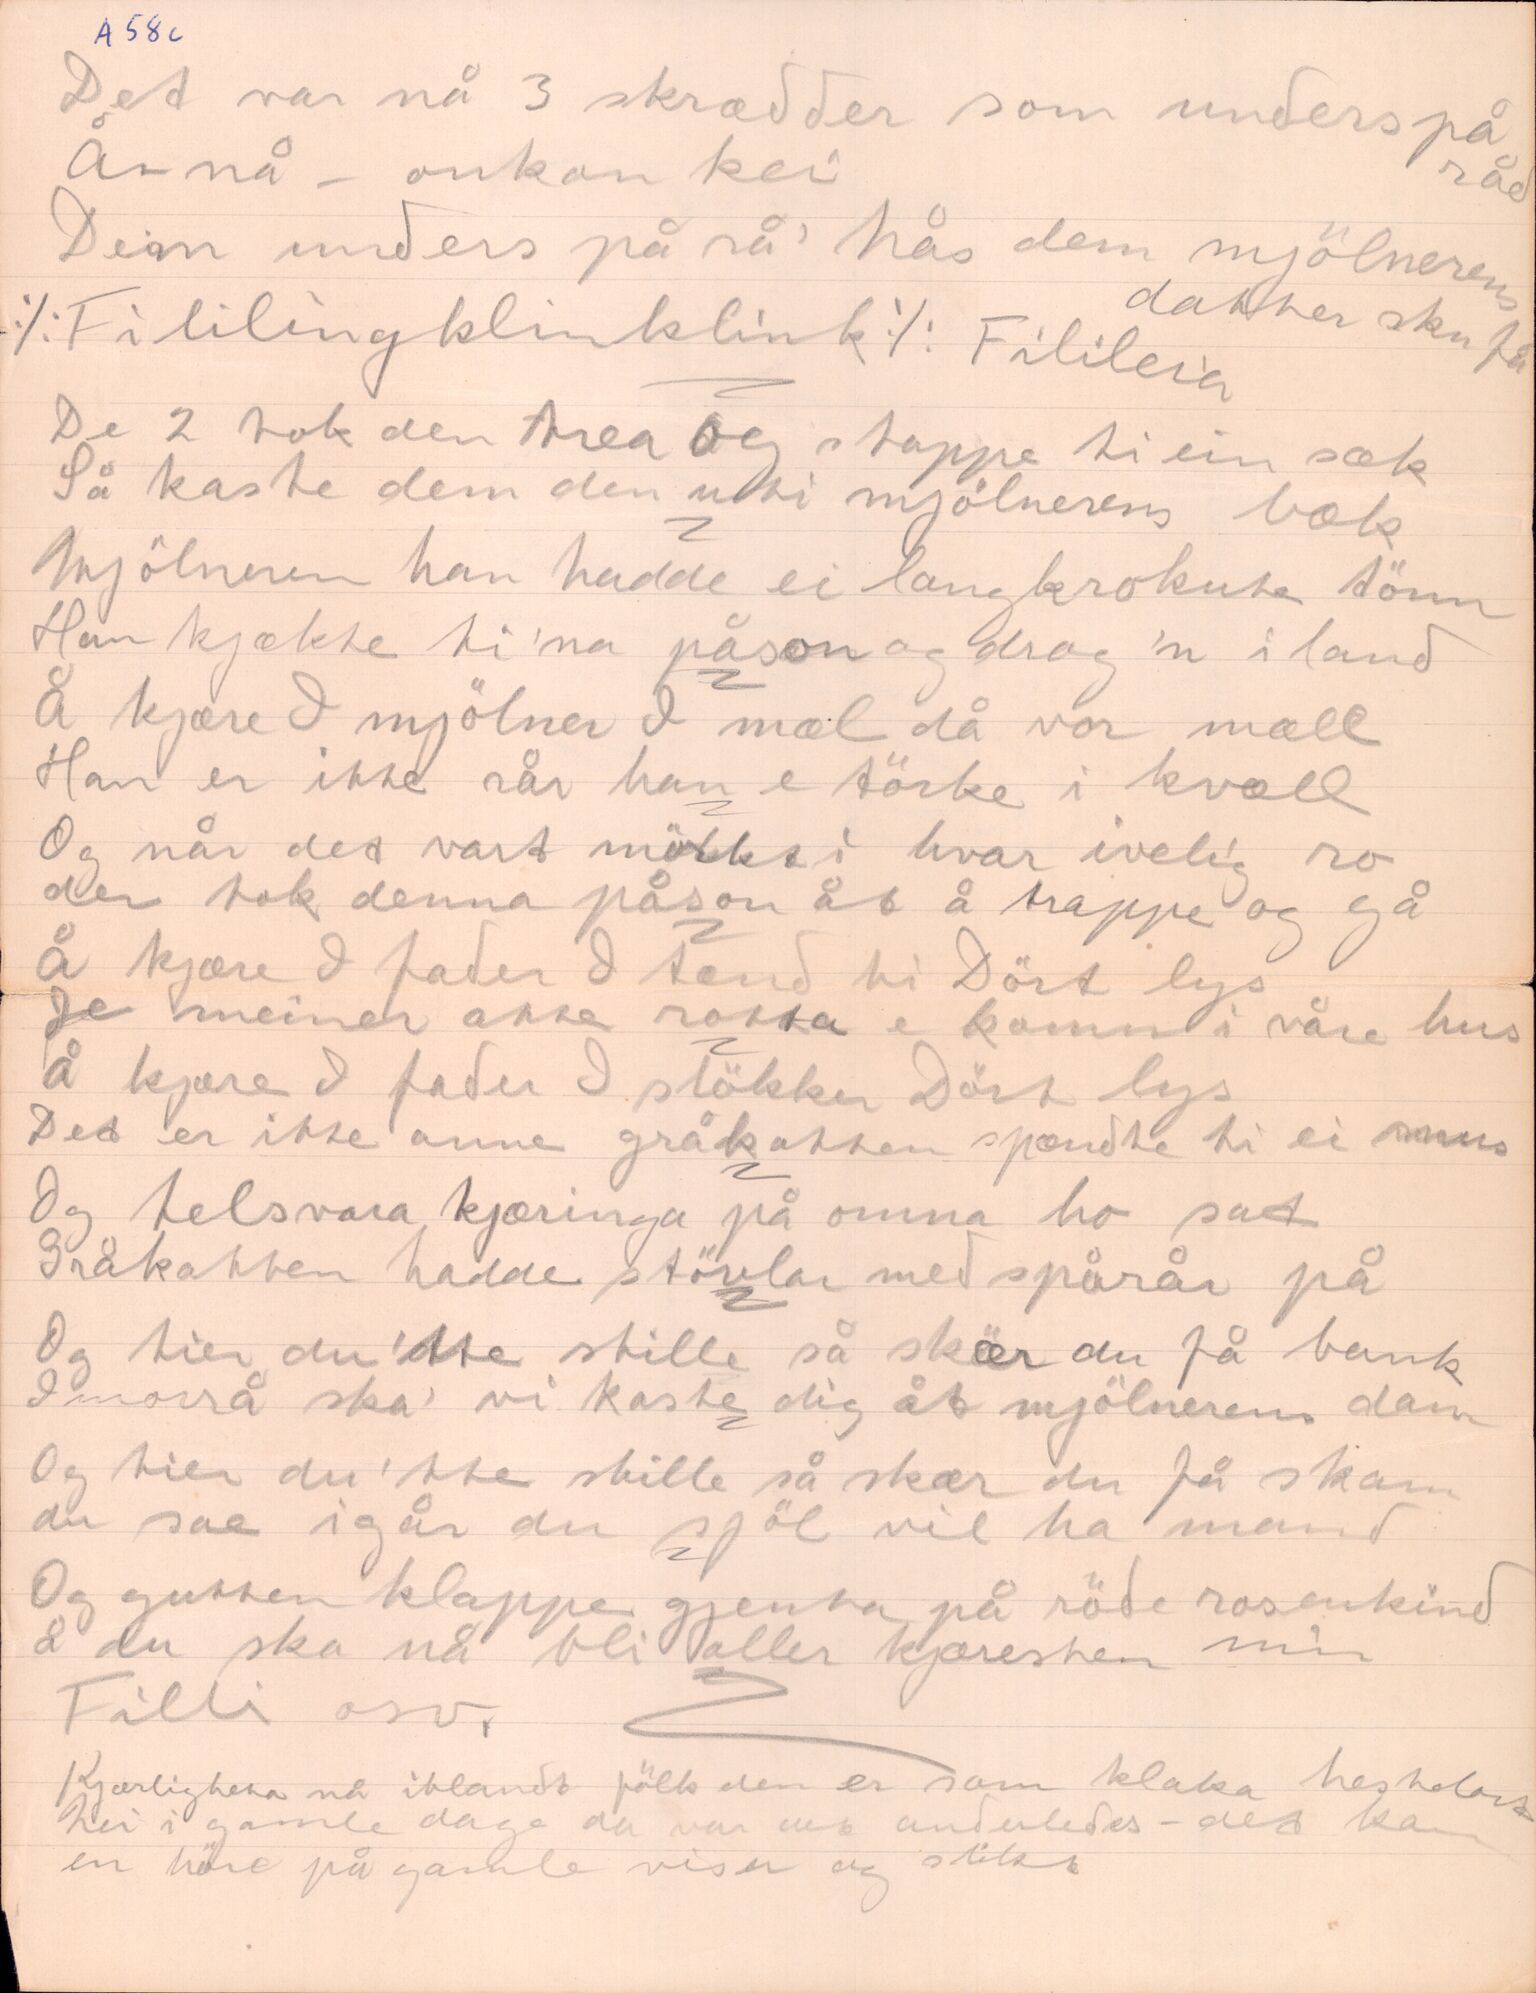 A 58c
Det var nå 3 skrædder som unders på råd
Å nå – onkon kei
Deim unders på rå' hås dem mjölnerens datter sku få
:/: Fililingklinklink :/: Filileia
De 2 tok den trea og stappe ti ein sæk
Så kaste dem den uti mjölnerens bæk
Mjölneren han hadde ei langkrokute tönn
Han kjækte ti'na påson og drog 'n i land
Å kjære I mjölner I mæl då vor mæll
Han er itte rår han e törke i kvæll
Og når det vart mökkt i hvar ivelig ro
der tok denna påson åt å trappe og gå
Å kjære I fader I tænd ti Dört lys
Je meiner atte rotta e komn i våre hus
Å kjære I fader I stökker Dört lys
Det er itte anne gråkatten spændte ti ei mus
Og telsvara kjæringa på omna ho sat
Gråkatten hadde stövlar med spårår på
Og tier du'tte stille så skær du få bank
I morrå ska' vi kaste dig åt mjölnerens dam
Og tier du'tte stille så skær du få skam
du sae igår du sjöl vil ha mand
Og gutten klappe gjenta på röde rosenkind
å du ska nå bli aller kjæresten min
Filli osv.
Kjærligheta nå iblandt fölk den er som klaka hestelort
hei i gamle dage da var det anderledes – det kan
en höre på gamle viser og slikt